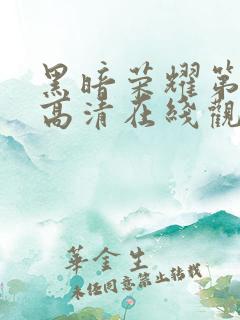 黑暗荣耀第
高清在线觀
華金生
未经同意禁止转载